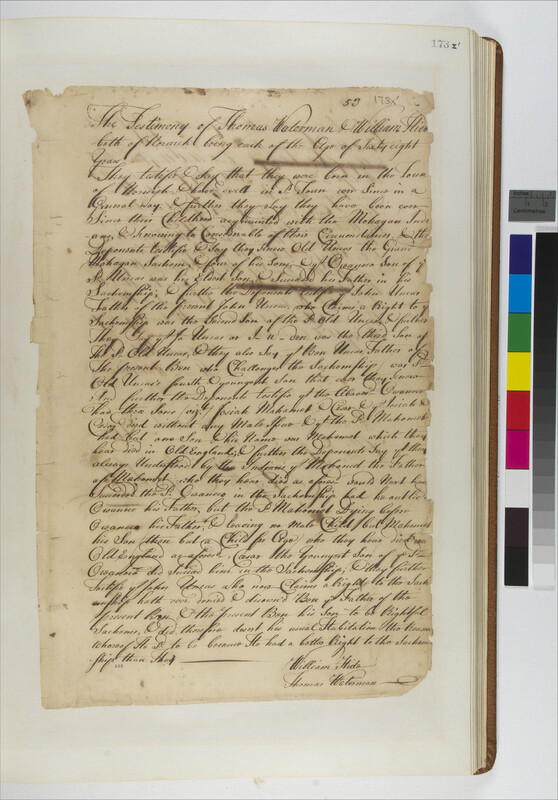 173x'
53 173x'
The Testimony of Thomas Waterman & William Hide
both of Norwich being each of the Age of Sixty eight
Years
They testifie & Say that they were born in the Town
of Norwich & have dwelt in Sd. Town ever Since in a
General way, & further they Say they have been ever
Since their Childhood acquainted with the Mohegan Indi
ans, & Knowing to Considerable of their Circumstances, & the
Deponents testifie & Say they Knew Old Uncas the Grand
Mohegan Sachem, & four of his Sons, & yt. Owaneco Son of ye
Sd. Uncas was his Eldest Son, & Succeeded his Father in his
Sachemship; & further the Deponents testifie yt John Uncas
Father of the present John Uncas, who Claims a Right to ye
Sachemship was the Second Son of the Sd. Old Uncas, & further
They Say yt Jo Uncas or was the third Son of
the Sd. Old Uncas, & they also Say yt Ben Uncas Father of
the present Ben who Challenges the Sachemship was Sd.
Old Uncas's fourth & youngest Son that ever they Knew
And further the Deponents testifie yt the Above Owaneco
had three Sons vizt. Josiah Mahomet & Cesar & yt Josiah &
Cesar died without any Male Issue & yt the Sd. Mahomet
had but one Son & his Name was Mahomet which they
hear died in Old England; & further the Deponents Say yt they
always Understood by the Indians yt Mahomet the Father
of Mahomet, who they hear died as aforesd. would Next have
Succeeded the Sd. Owaneco in the Sachemship had he outlived
Owaneco his Father, but the Sd. Mahomet Dying before
Owaneco his Father, & leaving no Male Child but Mahomet
his Son (then but a Child for Age) who they hear died in
Old England as aforesd. Cesar the Youngest Son of ye Sd.
Owaneco did Succeed him in the Sachemship; & they further
Testifie yt John Uncas who now Claims a Right to the Sach
emship hath ever denied & disown'd Ben ye Father of the
present Ben, & the present Ben his Son to be Rightfull
Sachems, & did therefore desert his usual Habitation the Reason
whereof He Sd. to be because He had a better Right to the Sachem
ship than They
William Hide
Thomas Waterman